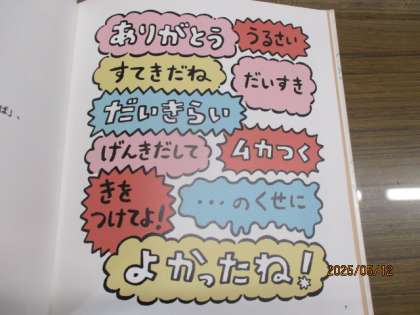 ありがとう
うるさい
すてきだね
だいすき
だいきらい
げんきだして
ムカつく
きを
つけてよ!
…のくせに
よかったね!
ば」、
2025/05/12